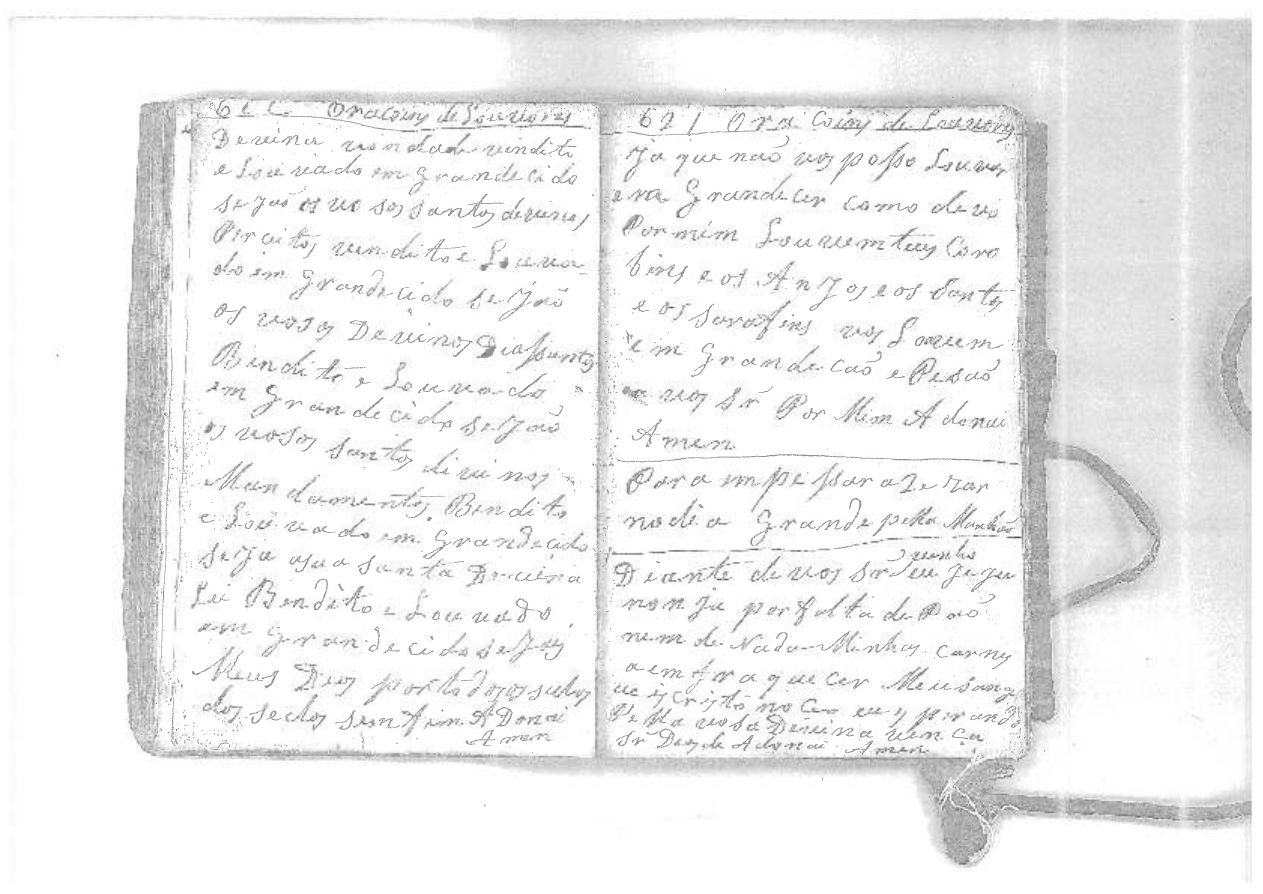 Oracoins de Louvores
Devina vondade vendito
e Louvado em grandecido
se Jaõ os vosos santos devinos
vendito e Louva-
do em grandecido se Jaõ
os vosos Devinos
Bendito e Louvado
em grandecido se Jaõ
os vosos santos divinos
Mandamentos Bendito
e Louvado em grandecido
seJa a sua santa Deveina
Lei Bendito e Louvado
em grandecido seJais
Meus Deos por todos os sculos
dos seclos sem fim ADonai
Amen
621 Ora Coins de Louvores
Ja que naõ vos poso Louvar
em Grandecer como devo
Por mim Louvem
bins e os AnJos e os Santos
e os sarafins vos Louvem
em Grandecaõ e Pesaõ
a vos Sr Por Mim Adonai
Amen
Para impesar a ReZar
no dia Grande pella Manhãa
Diante de vos Sr venho eu JeJu
non Ja por falta de Paõ
nem de Nada Minhas carnes
a emfraquecer Meu sange
no Ceo
Pella vosa Deveina vença
Sr Deos de Adonai Amen